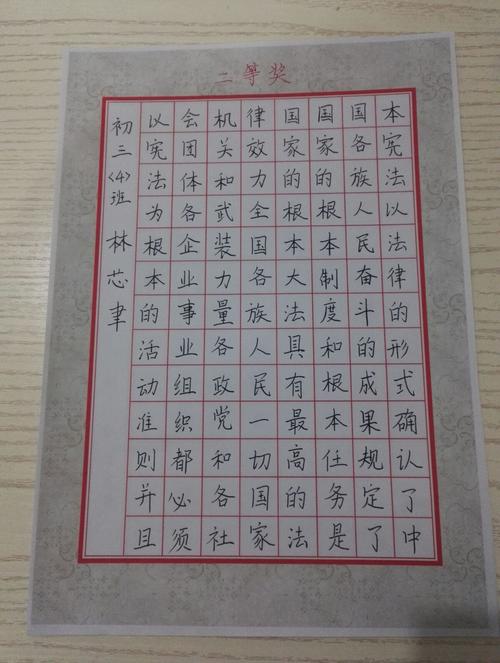 二等奖
本宪法以法律的形式确认了中
国各族人民奋斗的成果规定了
国家的根本制度和根本任务是
国家的根本大法具有最高的法
律效力全国各族人民一切国家
机关和武装力量各政党和各社
会团体各企业事业组织都必须
以宪法为根本的活动准则并且
初三〈4〉班 林芯聿